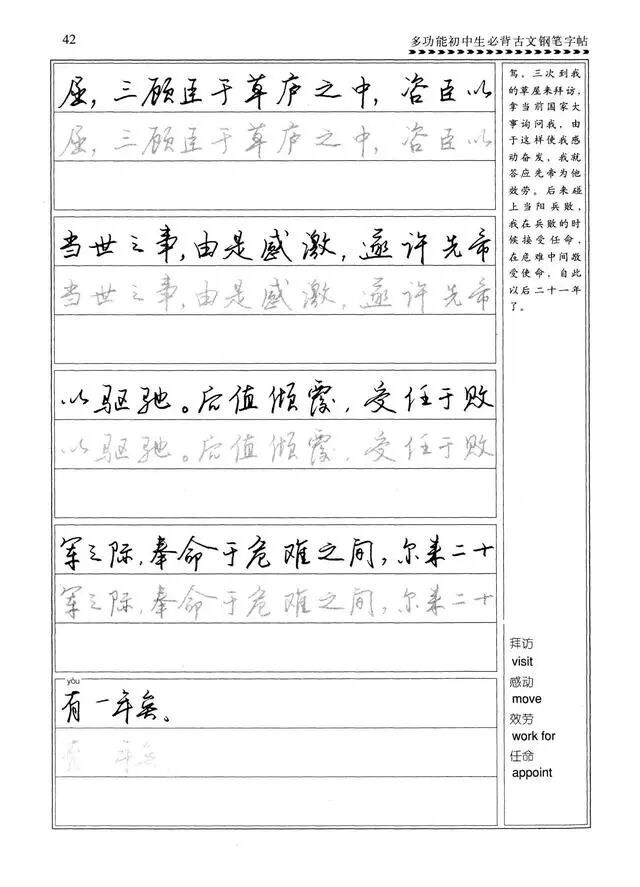 42
多功能初中生必背古文钢笔字帖
屈,三顾臣于草庐之中,咨臣以
屈,三顾臣于草庐之中,咨臣以
当世之事,由是感激,遂许先帝
当世之事,由是感激,遂许先帝
以驱驰。后值倾覆,受任于败
以驱驰。后值倾覆,受任于败
军之际,奉命于危难之间,尔来二十
军之际,奉命于危难之间,尔来二十
yòu
有一年矣。
有 年矣。
驾,三次到我
的草屋来拜访,
拿当前国家大
事询问我,由
于这样使我感
动奋发,我就
答应先帝为他
效劳。后来碰
上当阳兵败,
我在兵败的时
候接受任命,
在危难中间敬
受使命,自此
以后二十一年
了。
拜访
visit
感动
move
效劳
work for
任命
appoint